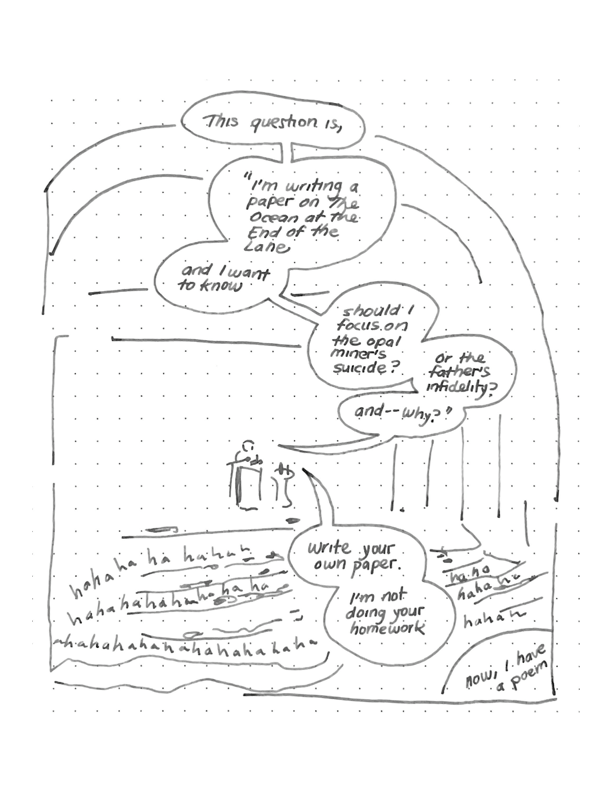 This question is,
"I'm writing a
paper on The
Ocean at the
End of the
Lane
and I want
to know
should I
focus on
the opal
miner's
suicide?
or the
father's
infidelity?
and--why?"
write your
own paper.
I'm not
doing your
homework
hahaha ha hahah
hahahahahahahahaha
hahahahahahahahahaha
ha ha
hahaha
hahah
now, I have
a poem